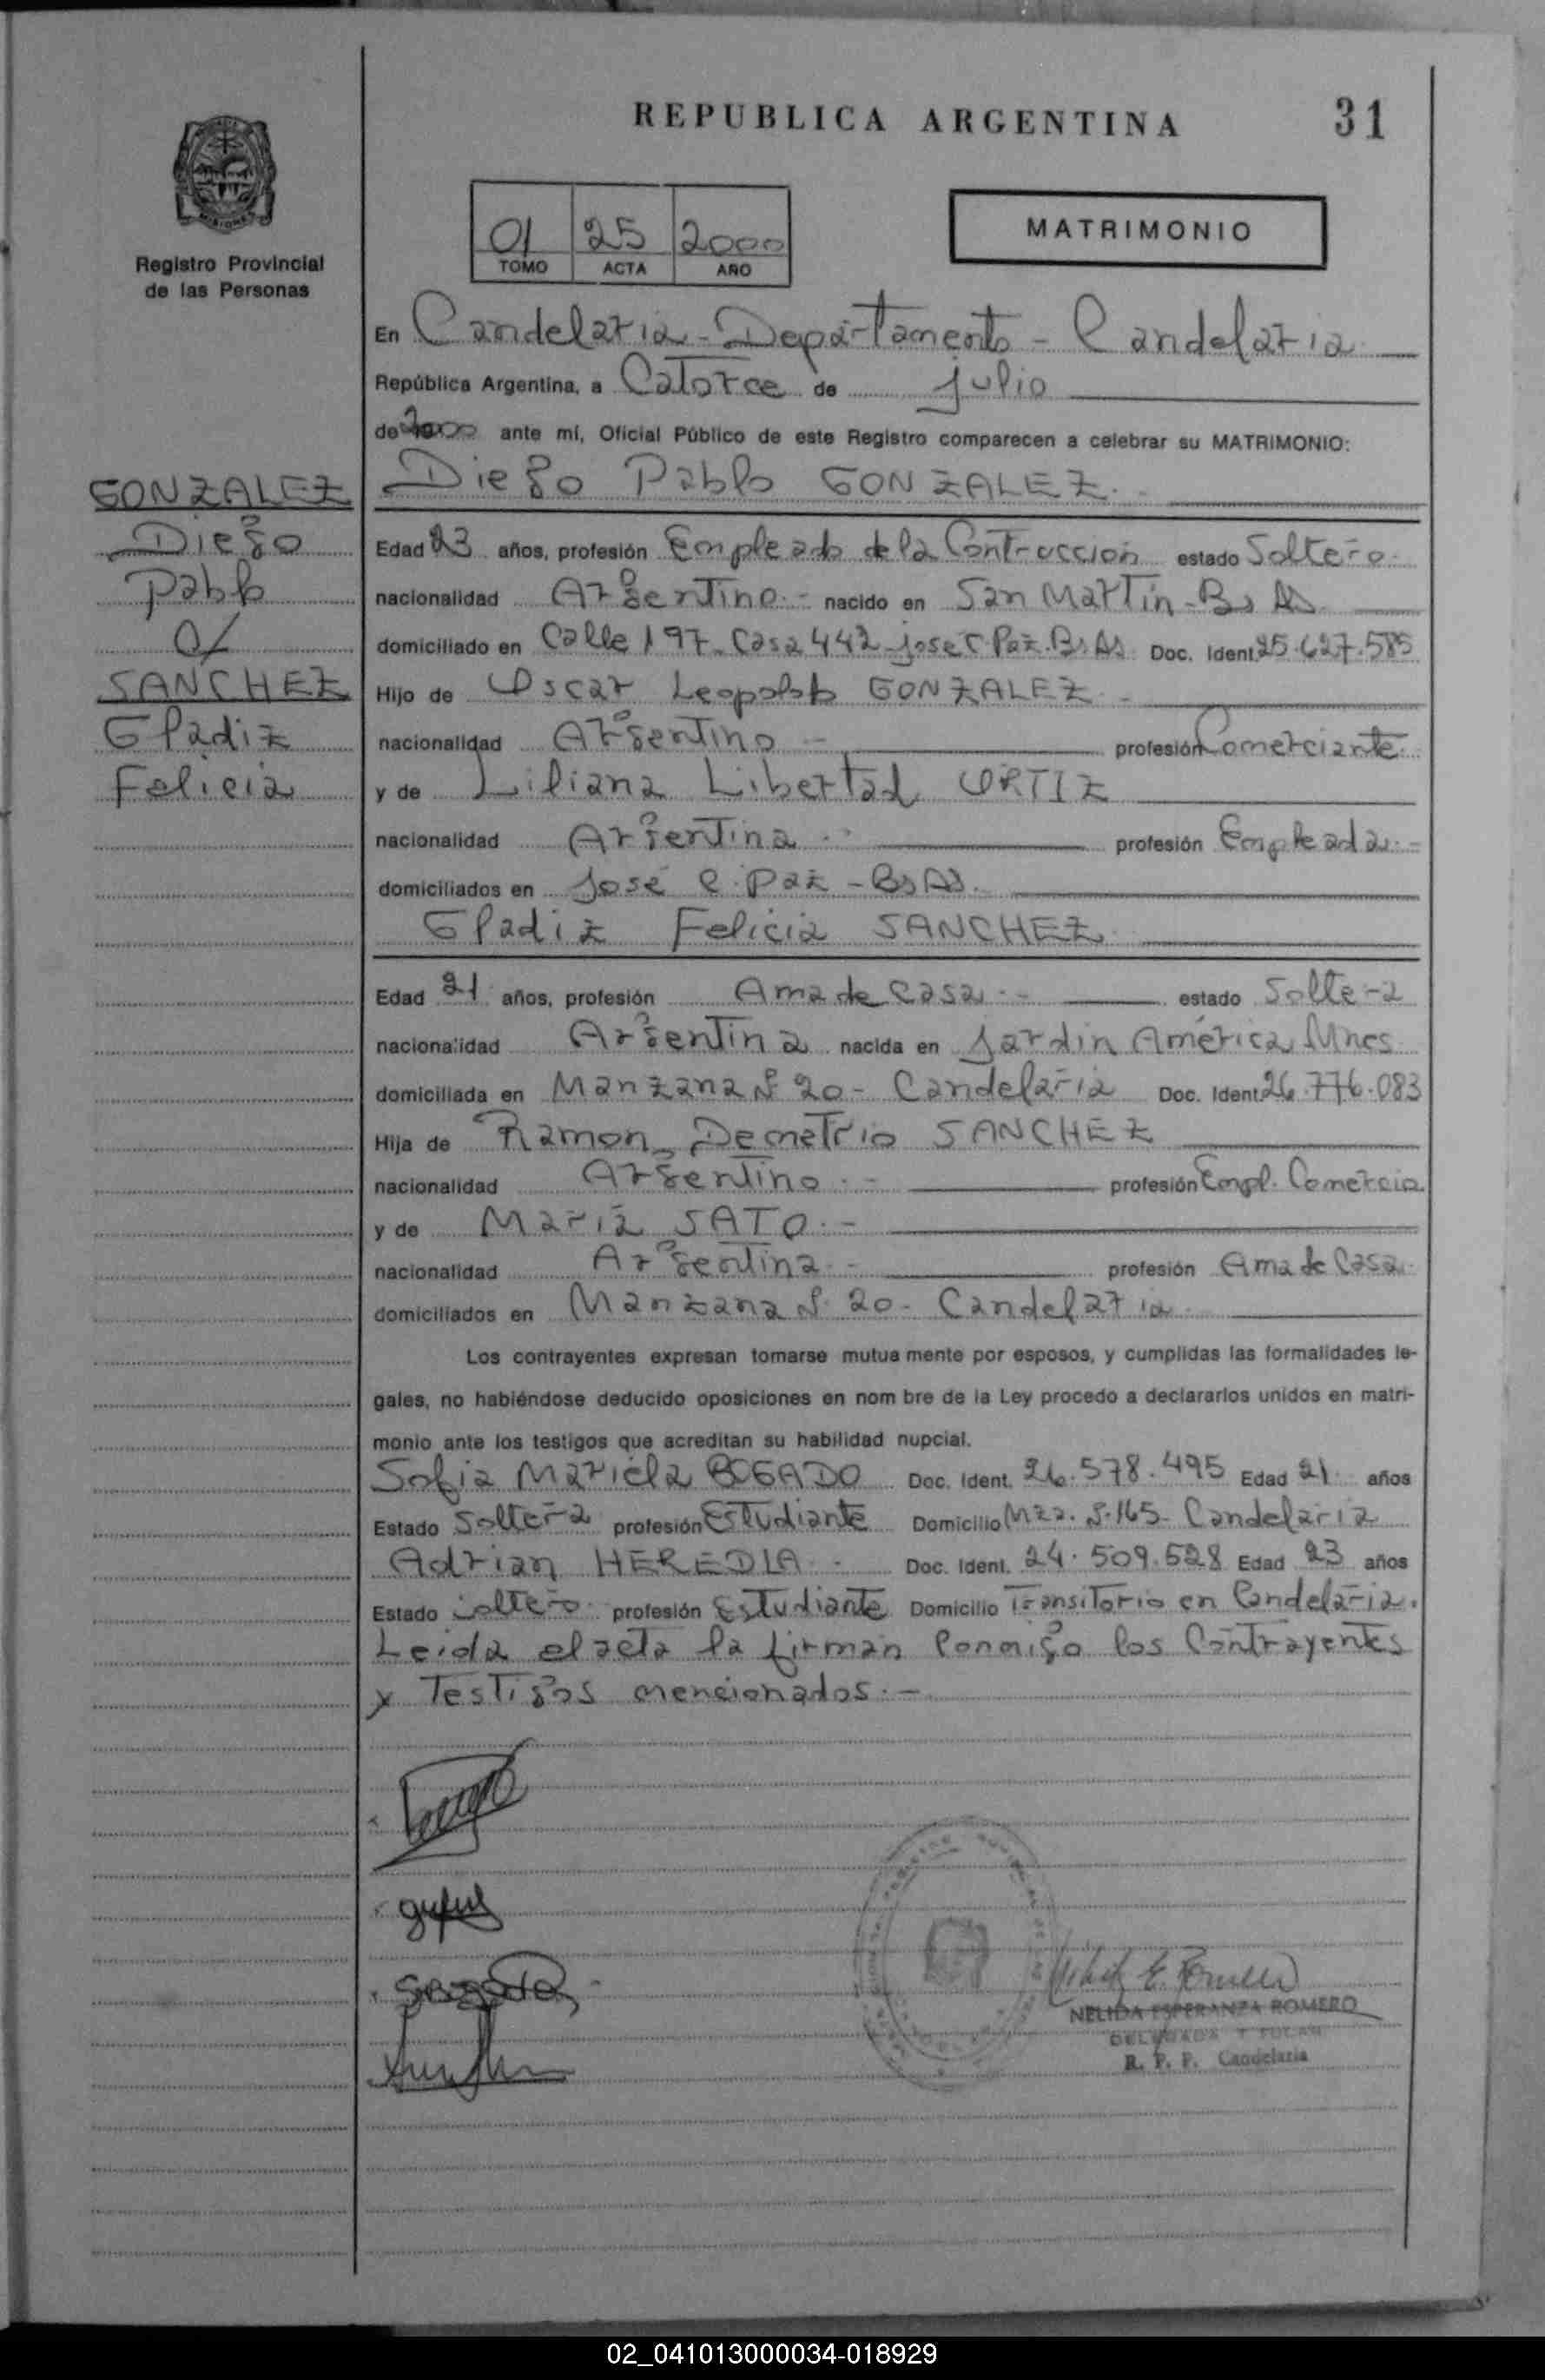 REPUBLICA ARGENTINA
31
MISIONES
Registro Provincial
de las Personas
01 25 2000
TOMO ACTA AÑO
MATRIMONIO
En Candelaria - Departamento - Candelaria
República Argentina, a Catorce de julio
de 2000 ante mí, Oficial Público de este Registro comparecen a celebrar su MATRIMONIO:
GONZALEZ
Diego
Pablo
c/
SANCHEZ
Gladiz
Felicia
Diego Pablo GONZALEZ.-
Edad 23 años, profesión Empleado de la Contruccion estado Soltero.
nacionalidad Argentino.- nacido en San Martin - Bs As
domiciliado en Calle 197 - Casa 442 - jose C Paz - Bs As Doc. Ident. 25.627.585
Hijo de Oscar Leopoldo GONZALEZ.-
nacionalidad Argentino - profesión Comerciante.
y de Liliana Libertad ORTIZ
nacionalidad Argentina.- profesión Empleada.-
domiciliados en José C. Paz - Bs As.
Gladiz Felicia SANCHEZ
Edad 21 años, profesión Ama de casa.- estado Soltera
nacionalidad Argentina nacida en Jardin América, Mnes
domiciliada en Manzana Nº 20 - Candelaria Doc. Ident. 26.776.083
Hija de Ramon, Demetrio SANCHEZ
nacionalidad Argentino.- profesión Empl. Comercio.
y de Maria SATO.-
nacionalidad Argentina.- profesión Ama de Casa.
domiciliados en Manzana Nº 20 - Candelaria.
Los contrayentes expresan tomarse mutua mente por esposos, y cumplidas las formalidades le-
gales, no habiéndose deducido oposiciones en nom bre de la Ley procedo a declararlos unidos en matri-
monio ante los testigos que acreditan su habilidad nupcial.
Sofia Mariela BOGADO Doc. Ident. 26.578.495 Edad 21 años
Estado Soltera profesión Estudiante Domicilio Mza. Nº 165 - Candelaria
Adrian HEREDIA.- Doc. Ident. 24.509.528 Edad 23 años
Estado soltero. profesión Estudiante Domicilio Transitorio en Candelaria.
Leida el acta la firman conmigo los Contrayentes
y Testigos mencionados.-
NELIDA ESPERANZA ROMERO
DELEGADA TITULAR
R. P. P. Candelaria
02_041013000034-018929